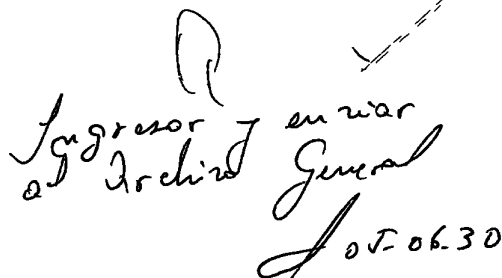 Ingresar y enviar
al Archivo General
05-06-30